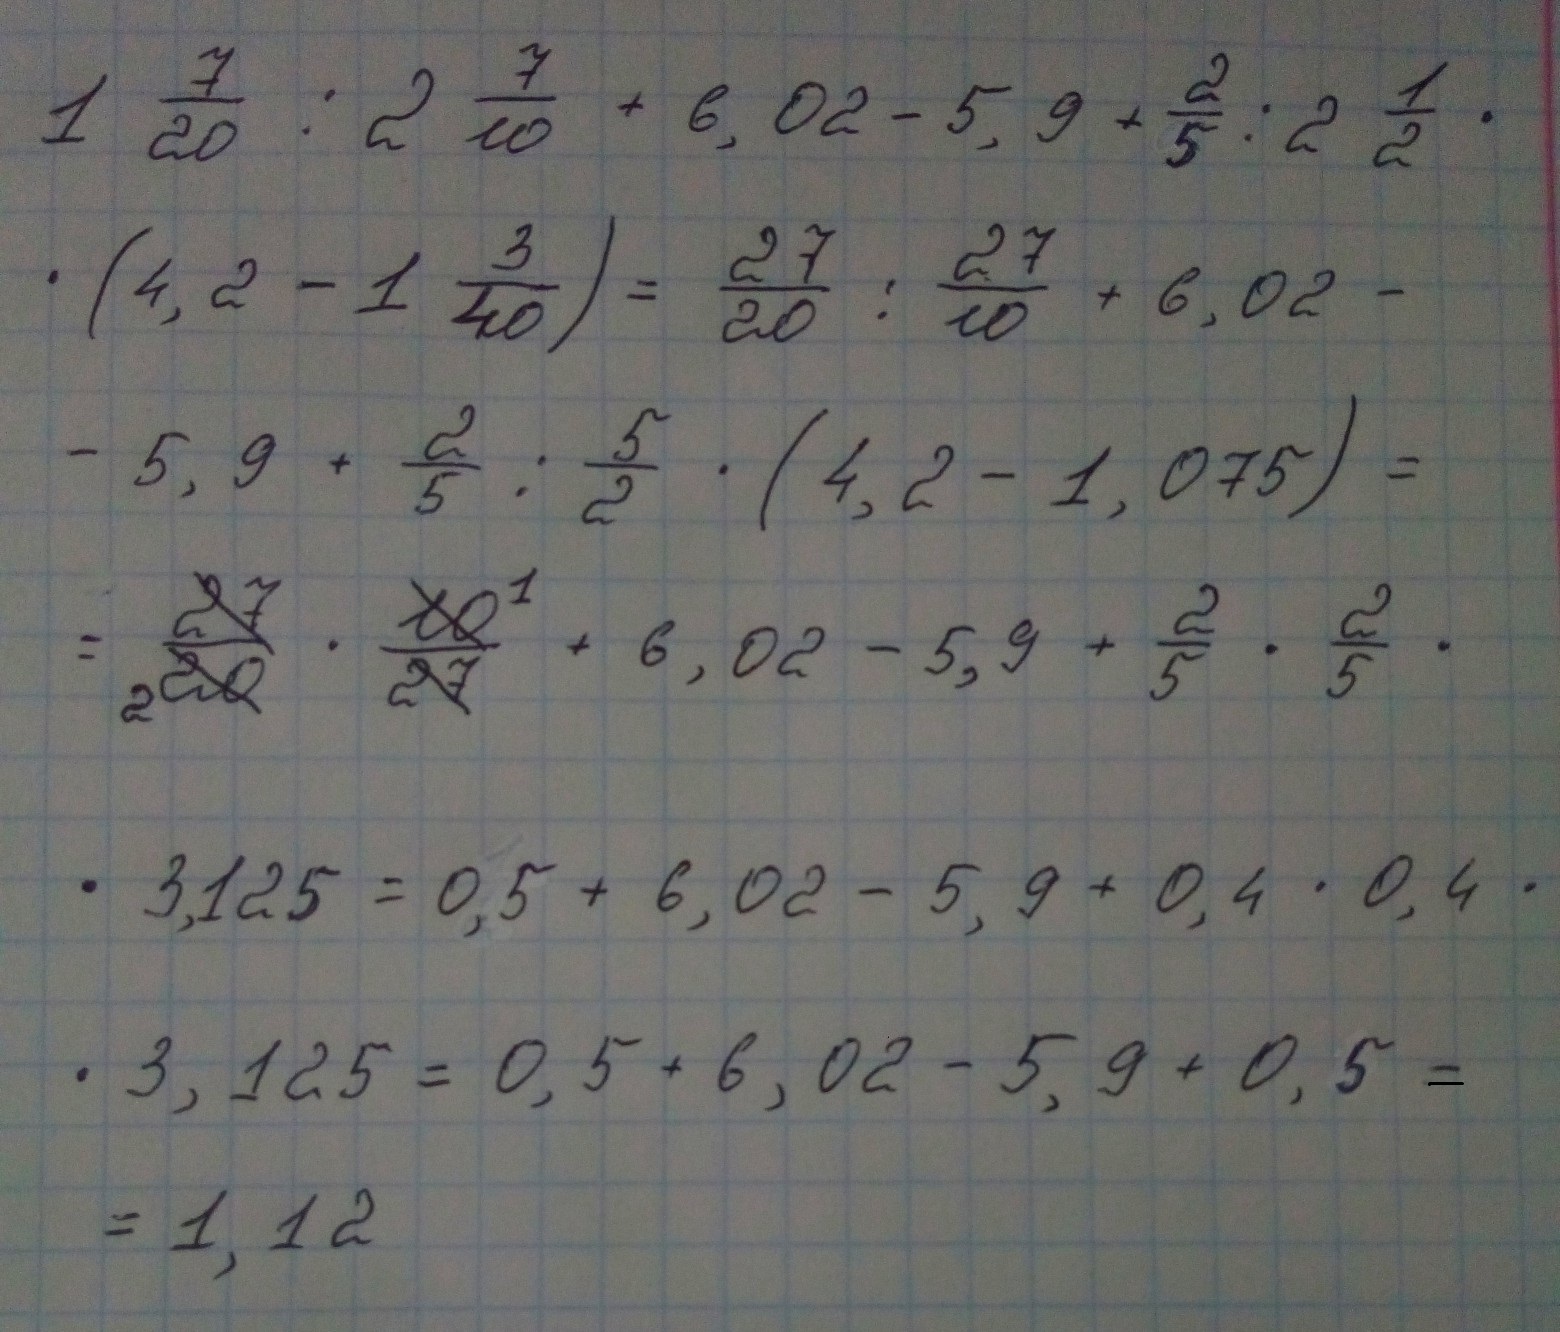 1 7/20 : 2 7/10 + 6,02 - 5,9 + 2/5 : 2 1/2 ·
· (4,2 - 1 3/40) = 27/20 : 27/10 + 6,02 -
- 5,9 + 2/5 : 5/2 · (4,2 - 1,075) =
= 27/20 2 · 10/27 1 + 6,02 - 5,9 + 2/5 · 2/5 ·
· 3,125 = 0,5 + 6,02 - 5,9 + 0,4 · 0,4 ·
· 3,125 = 0,5 + 6,02 - 5,9 + 0,5 =
= 1,12